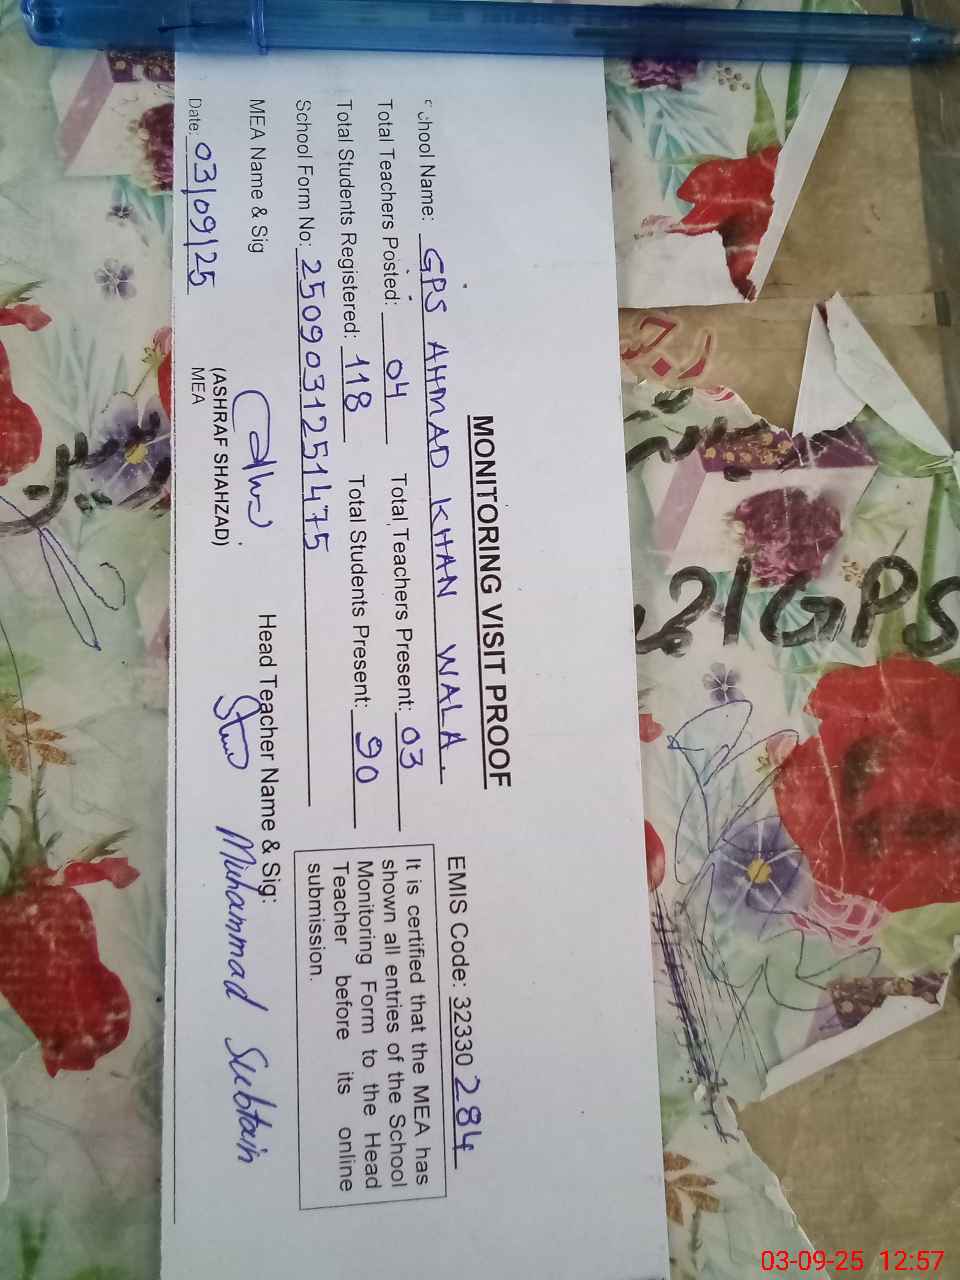 MONITORING VISIT PROOF
EMIS Code: 32330 284
School Name: GPS AHMAD KHAN WALA.
Total Teachers Posted: 04 Total Teachers Present: 03
Total Students Registered: 118 Total Students Present: 90
School Form No: 2509031251475
It is certified that the MEA has
shown all entries of the School
Monitoring Form to the Head
Teacher before its online
submission.
MEA Name & Sig
Head Teacher Name & Sig:
Muhammad Subtain
(ASHRAF SHAHZAD)
MEA
Date: 03/09/25
GPS
03-09-25 12:57